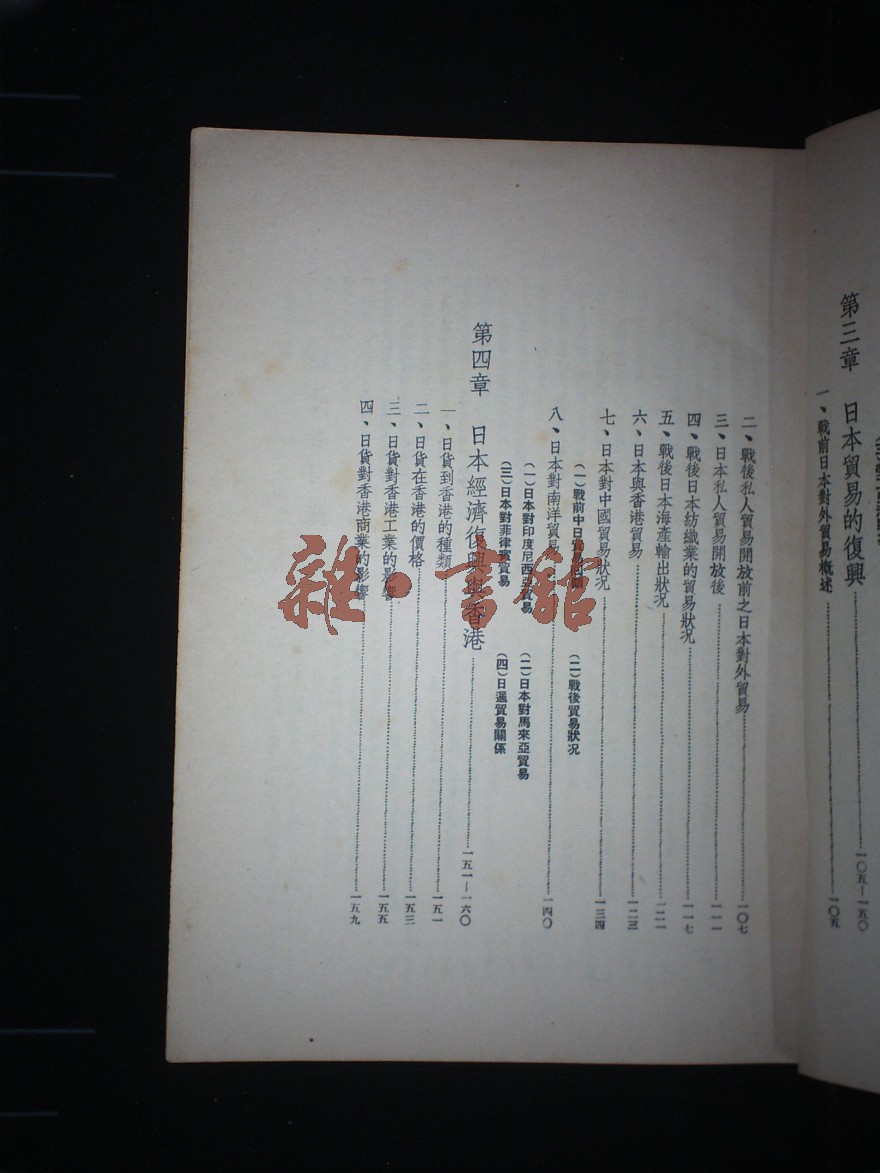 第三章　日本貿易的復興……一〇五—一五〇
一、戰前日本對外貿易概述……一〇五
二、戰後私人貿易開放前之日本對外貿易……一〇七
三、日本私人貿易開放後……一一一
四、戰後日本紡織業的貿易狀況……一一七
五、戰後日本海產輸出狀況……一二一
六、日本與香港貿易……一二三
七、日本對中國貿易狀况……一三四
（一）戰前中日貿易　（二）戰後貿易狀况
八、日本對南洋貿易……一四〇
（一）日本對印度尼西亞貿易　（二）日本對馬來亞貿易
（三）日本對菲律賓貿易　（四）日暹貿易關係
第四章　日本經濟復興與香港……一五一—一六〇
一、日貨到香港的種類……一五一
二、日貨在香港的價格……一五三
三、日貨對香港工業的影響……一五五
四、日貨對香港商業的影響……一五九
雜·書館